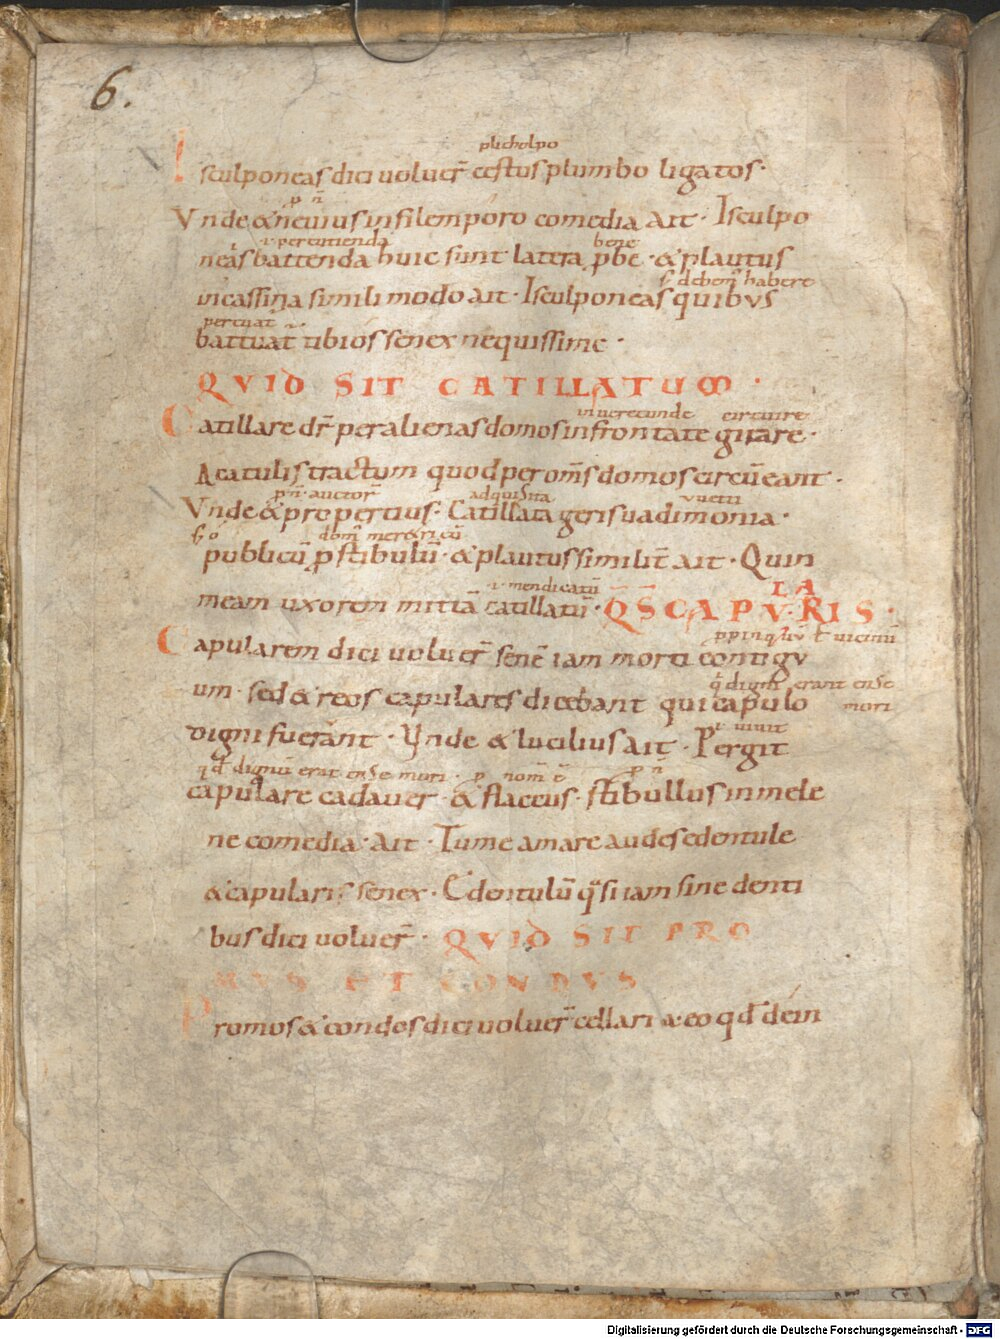 6.
plicholpo
I sculponeas dici uoluer̄ cestus plumbo ligatos·
p n̄
Vnde & neuius infilemporo comedia Ait· Isculpo
i· percutienda bene
neas battenda huic sunt latera p̱be· & plautus
s· debem̄ habere
incassina simili modo ait· Isculponeas quibus
percuat
battuat̄ tibios senex nequissime·
QVID SIT CATILLATUM·
inuerecunde circuire
Catillare dr̄ per alienas domos infrontate girare·
A catulis tractum quod per om̄s domos circūeant·
p n̄ auctor̄ adquisita vuetti
Vnde & propertius· Catillata geris uadimonia·
dom̄ meretricū
publicū p̱stibulū· & plautus similit̄ ait· Quin
i· mendicatū
meam uxorem mittā catillatū· Q̄ S̄ CAPV·RIS·
LA
ꝓpinquū ł uicinū
Capularem dici uoluer̄ senē iam morti contigu
q̄ digni erant ense
um· sed & reos capulares dicebant qui capulo
mori
i· uiuit
digni fuerant· Vnde & lucilius Ait· Pergit
qd̄ dignū erat ense mori· p nom̄ ē p n̄
capulare cadauer· & flaccus· stibullus in mele
ne comedia· Ait· Tu me amare audes edentule
& capularis senex· Edentulū q̄si iam sine denti
bus dici uoluer̄· QVID SIT PRO
MVS ET CONDVS
Promos & condos dici uoluer̄ cellari a eo qd̄ dein
Digitalisierung gefördert durch die Deutsche Forschungsgemeinschaft - DFG